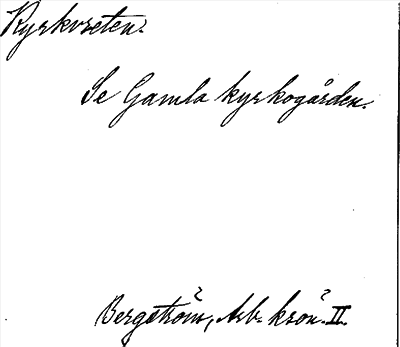 Kyrkvreten.
Se Gamla kyrkogården.
Bergström, Arb. krön. II.